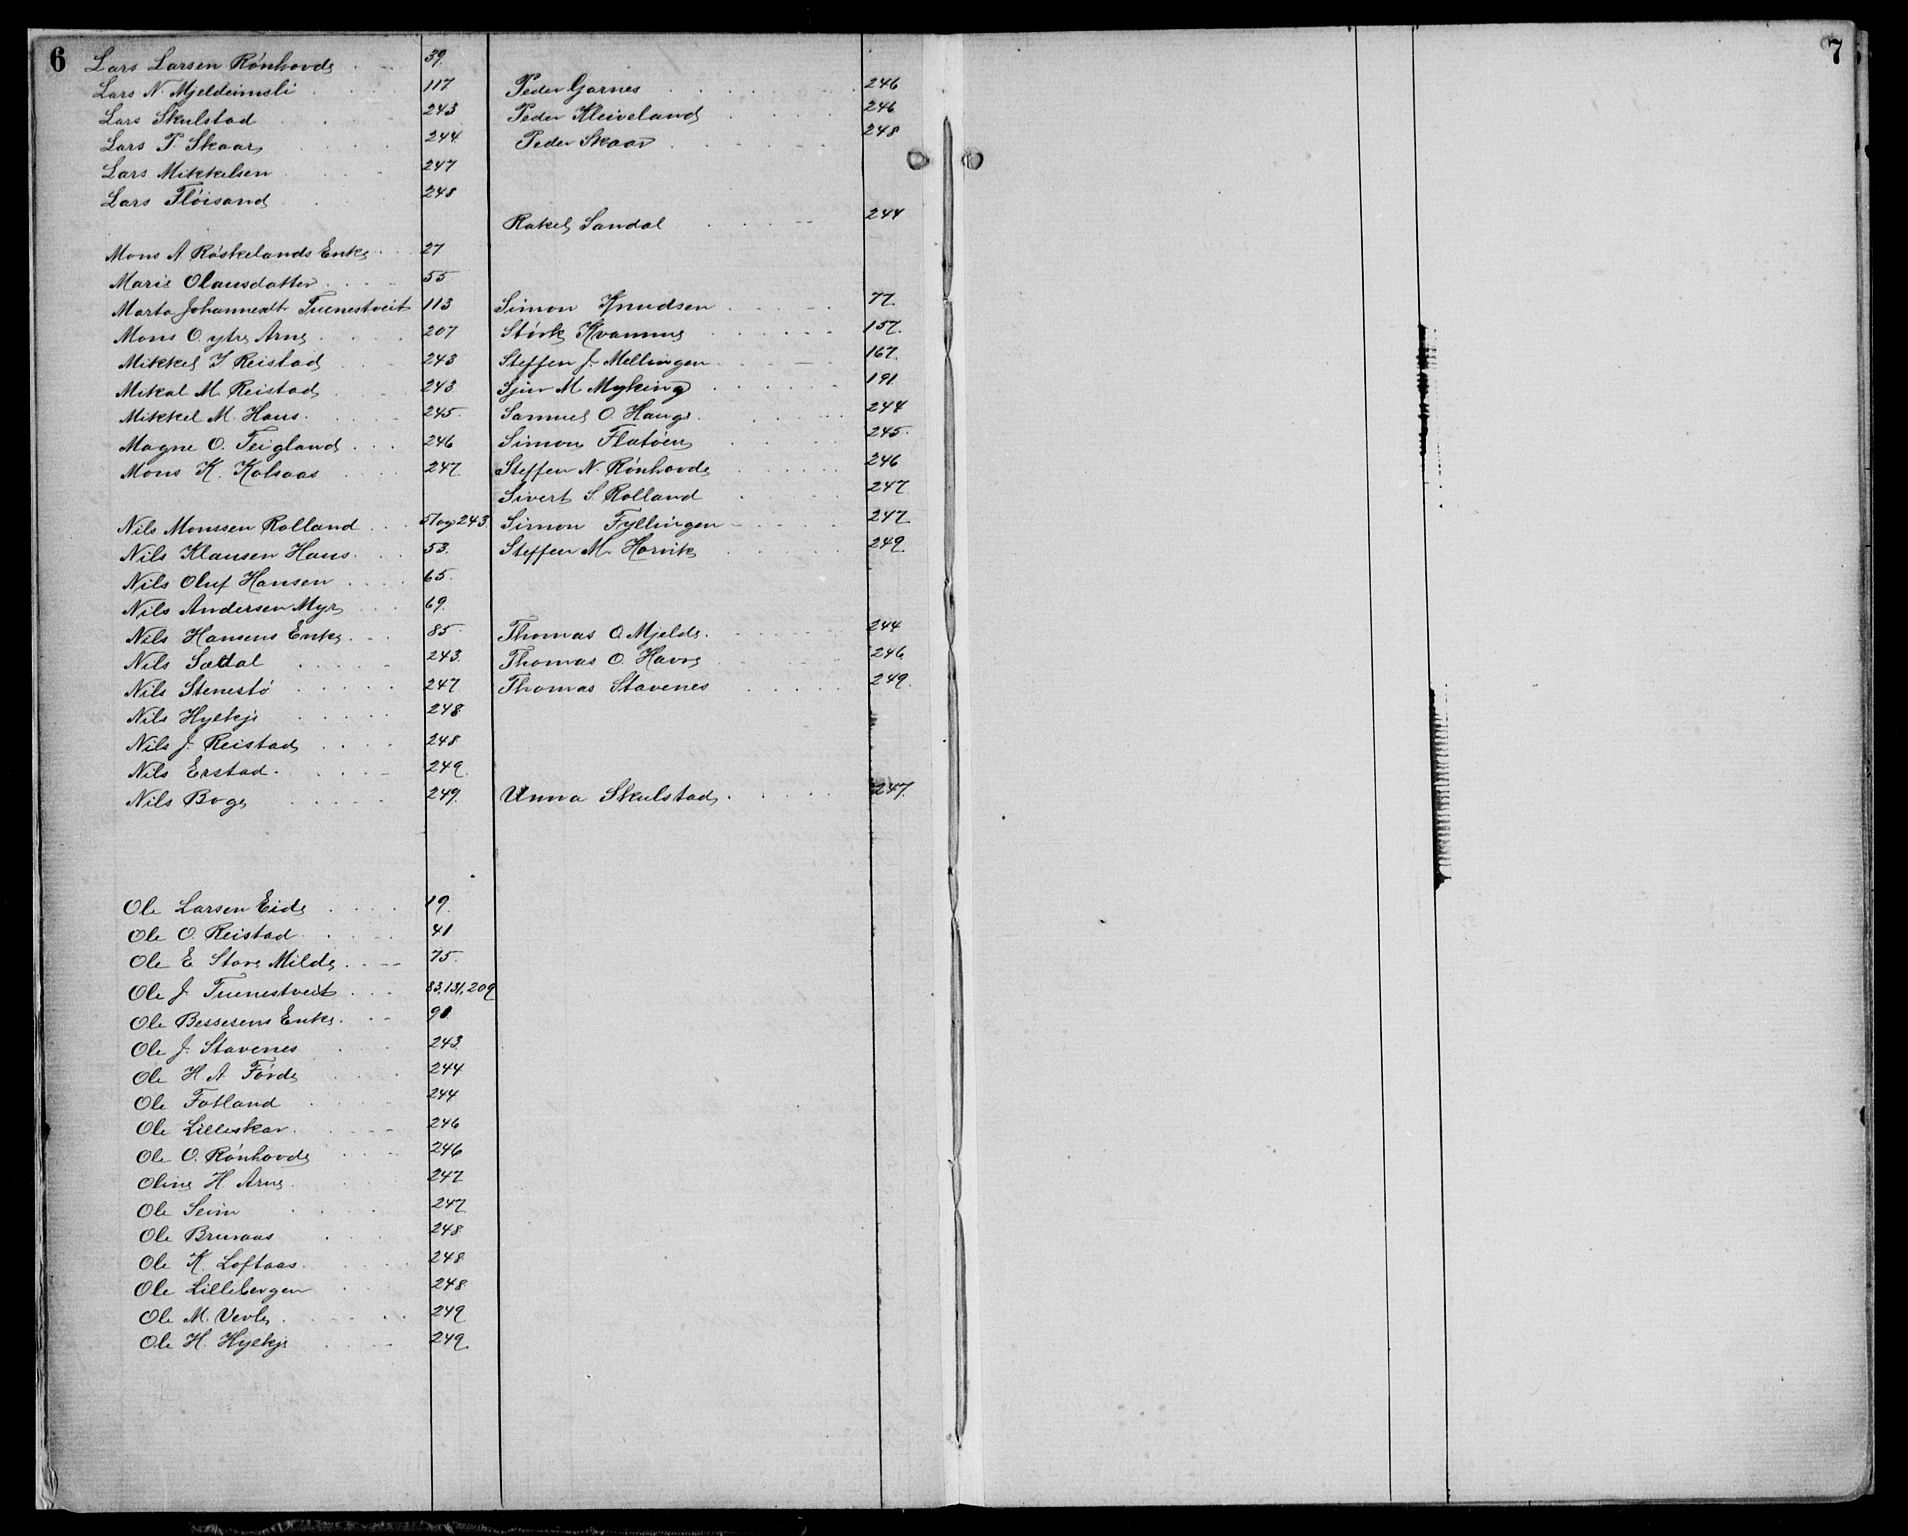 6
Lars Larsen Rönhovde 39.
Lars N Mjeldeimsli 117
Lars Skulstad 243
Lars P Skaar 244.
Lars Mikkelsen 247
Lars Flöisand 248
Mons A Röskelands Enke 27
Marie Olausdatter 55
Marta Johannesdt. Tuenestveit 113
Mons O. ytre Arne 207
Mikkel J Reistad 243
Mikal M. Reistad 243.
Mikkel M. Haus. 245.
Magne O. Teigland 246
Mons K. Kalsaas 247.
Nils Monssen Rolland 51 og 243.
Nils Klausen Haus. 53.
Nils Oluf Hansen 65.
Nils Andersen Myr 69.
Nils Hansens Enke. 85.
Nils Sædal 243.
Nils Stenestö 247.
Nils Hylkje 248.
Nils J. Reistad 248
Nils Erstad. 249.
Nils Boge 249.
Ole Larsen Eide 19.
Ole O. Reistad. 41
Ole E Store Milde. 75.
Ole J. Tuenestveit 83, 131, 209
Ole Bessesens Enke. 91
Ole J. Stavenes 243.
Ole H A Förde 244
Ole Fotland 244
Ole Lilleskar. 246
Ole O. Rönhovde 246
Oline H Arne. 247
Ole Seim 247.
Ole Bruraas 248
Ole K. Loftaas. 248.
Ole Lillebergen 248.
Ole M. Vevle. 249
Ole H. Hylkje 249.
Peder Garnes 246
Peder Kleiveland 246
Peder Skaar 248
Rakel Sandal 244
Simon Knudsen 77.
Störk Kvamme 157.
Steffen J. Mellingen 167.
Sjur M Myking 191.
Samuel O. Hauge. 244
Simon Flatöen 245.
Steffen N. Rönhovde 246
Sivert S. Rolland 247.
Simon Fyllingen 247.
Steffen M. Horvik 249.
Thomas O. Mjelde. 244
Thomas O. Havre 246.
Thomas Stavenes 249.
Unna Skulstad. 247.
7